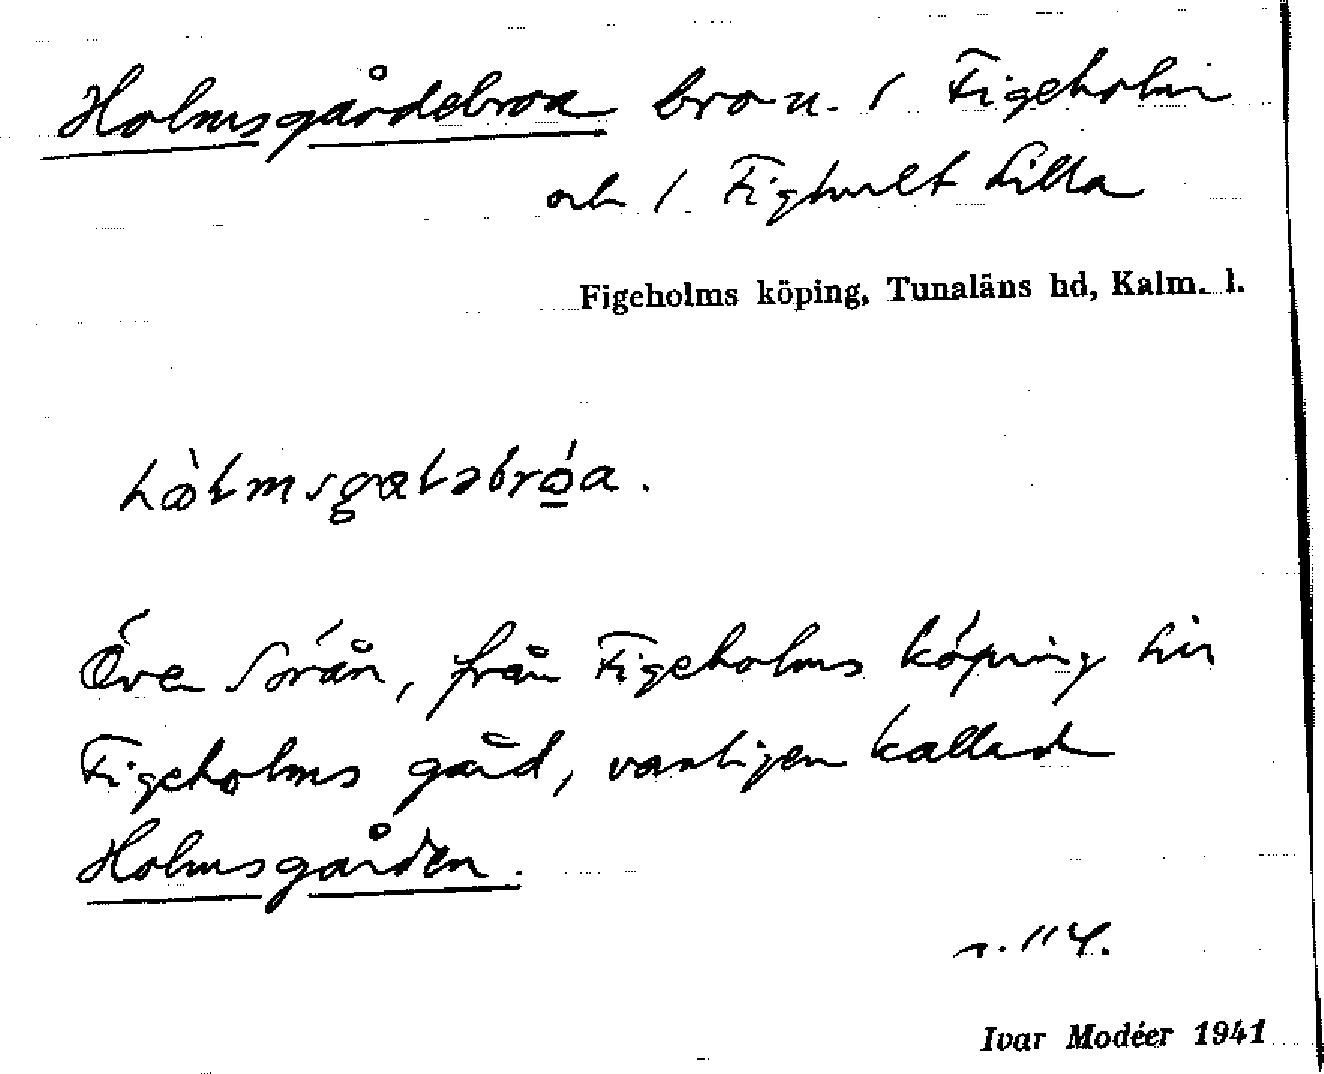 Holmsgårdebroa bro n. 1 Figeholm
och 1 Fighult Lilla
Figeholms köping, Tunaläns hd, Kalm. l.
Över Sörån, från Figeholms köping till
Figeholms gård, vanligen kallad
Holmsgården.
s. 114.
Ivar Modéer 1941